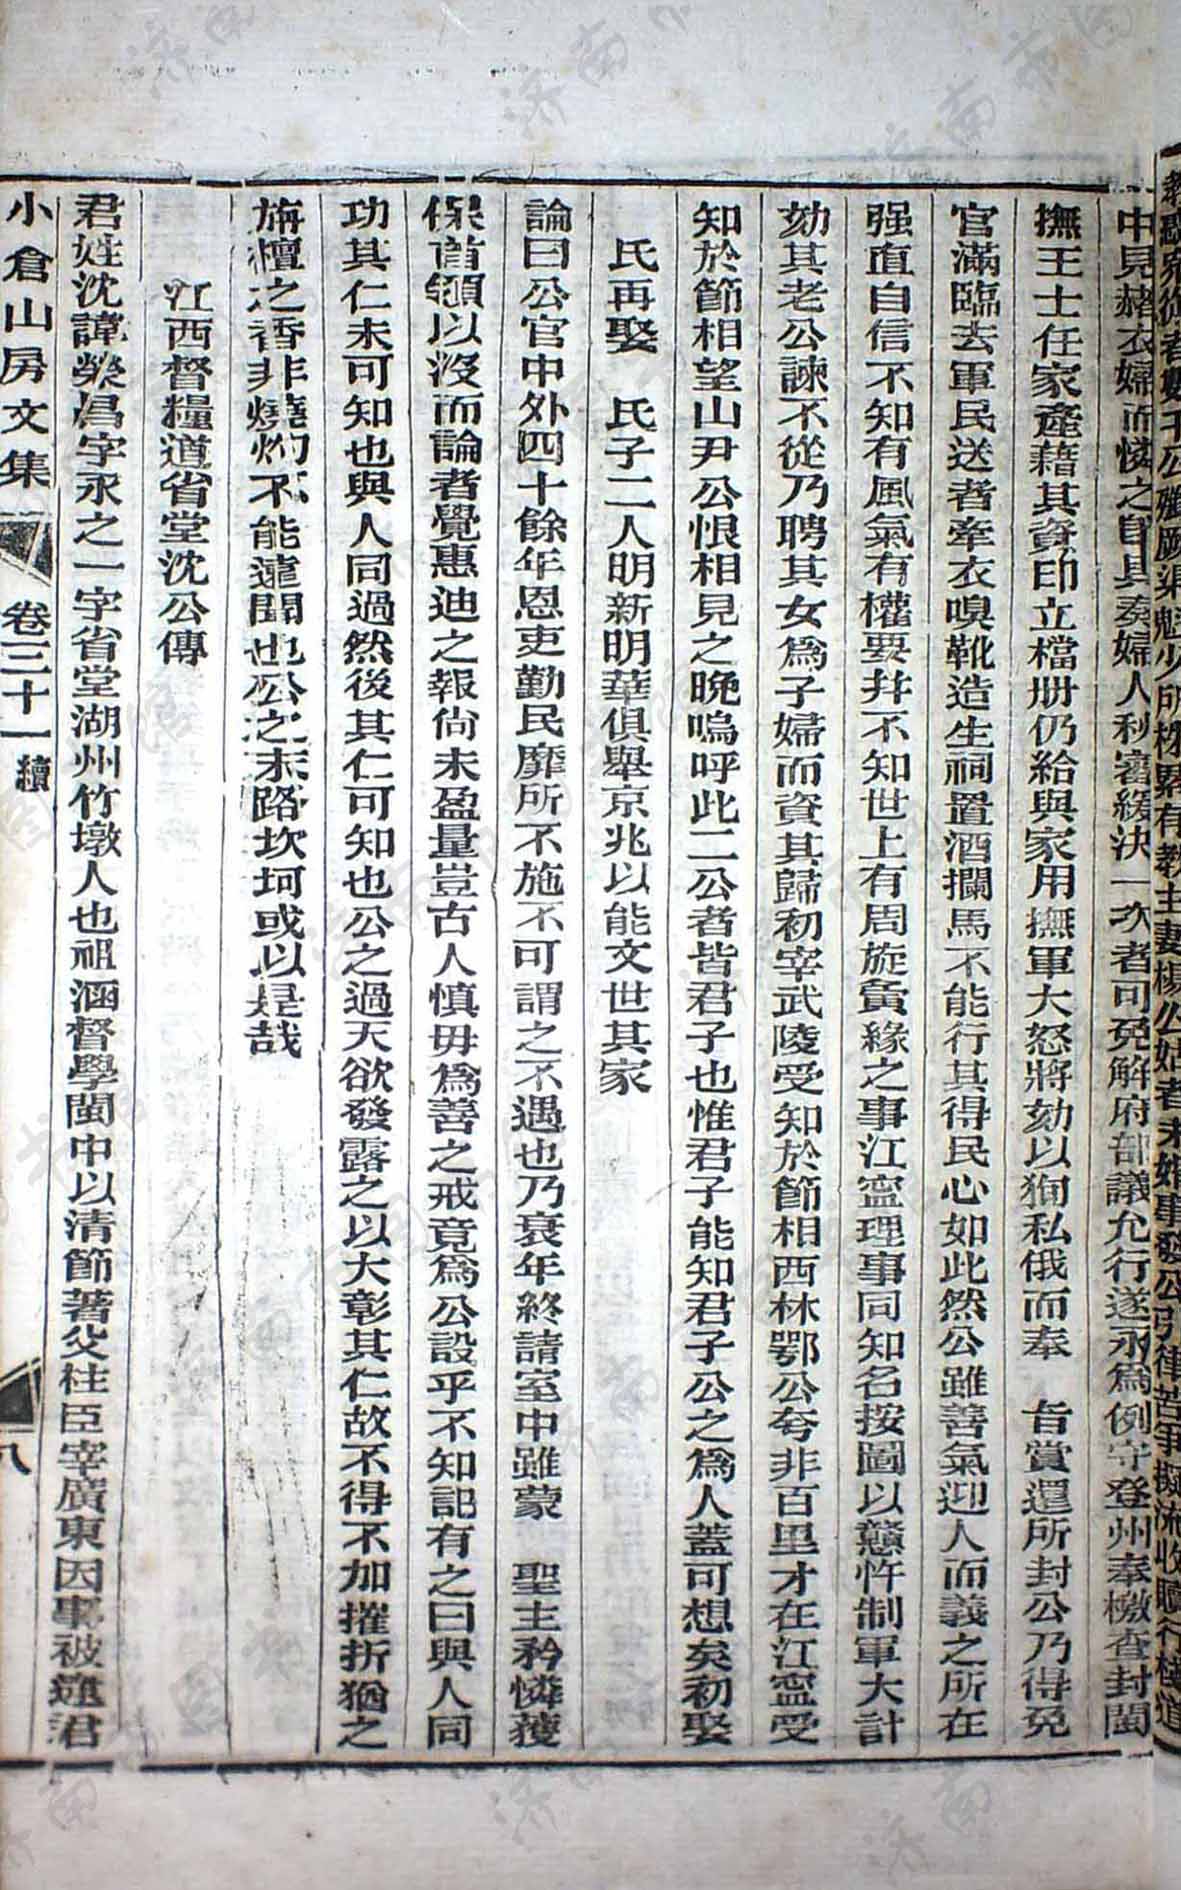 教聽宛從者數千公殲厥渠魁少所株累有教主妻楊公姑者未婚事發公引律若事擬流收贖行
中見赭衣婦而憐之自具奏婦人秋審緩決一次者可免解府部議允行遂永為例守登州奉檄查封閩
撫王士任家產藉其資印立檔册仍給與家用撫軍大怒將劾以狥私俄而奉 旨賞還所封公乃得免
官滿臨去軍民送者牽衣嗅靴造生祠置酒攔馬不能行其得民心如此然公雖善氣迎人而義之所在
强直自信不知有風氣有權要并不知世上有周旋夤緣之事江寍理事同知名按圖以戇忤制軍大計
劾其老公諫不從乃聘其女為子婦而資其歸初宰武陵受知於節相西林鄂公夸非百里才在江寍受
知於節相望山尹公恨相見之晚嗚呼此二公者皆君子也惟君子能知君子公之為人蓋可想矣初娶
氏再娶 氏子二人明新明華俱舉京兆以能文世其家
論曰公官中外四十餘年恩吏勤民靡所不施不可謂之不遇也乃衰年終請室中雖蒙 聖主矜憐獲
保首領以沒而論者覺惠迪之報尚未盈量豈古人慎毋為善之戒竟為公設乎不知記有之曰與人同
功其仁未可知也與人同過然後其仁可知也公之過天欲發露之以大彰其仁故不得不加摧折猶之
旃檀之香非燒灼不能遠聞也公之末路坎坷或以是哉
江西督糧道省堂沈公傳
君姓沈諱榮昌字永之一字省堂湖州竹墩人也祖涵督學閩中以清節著父柱臣宰廣東因事被逮君
小倉山房文集 卷三十一續 八